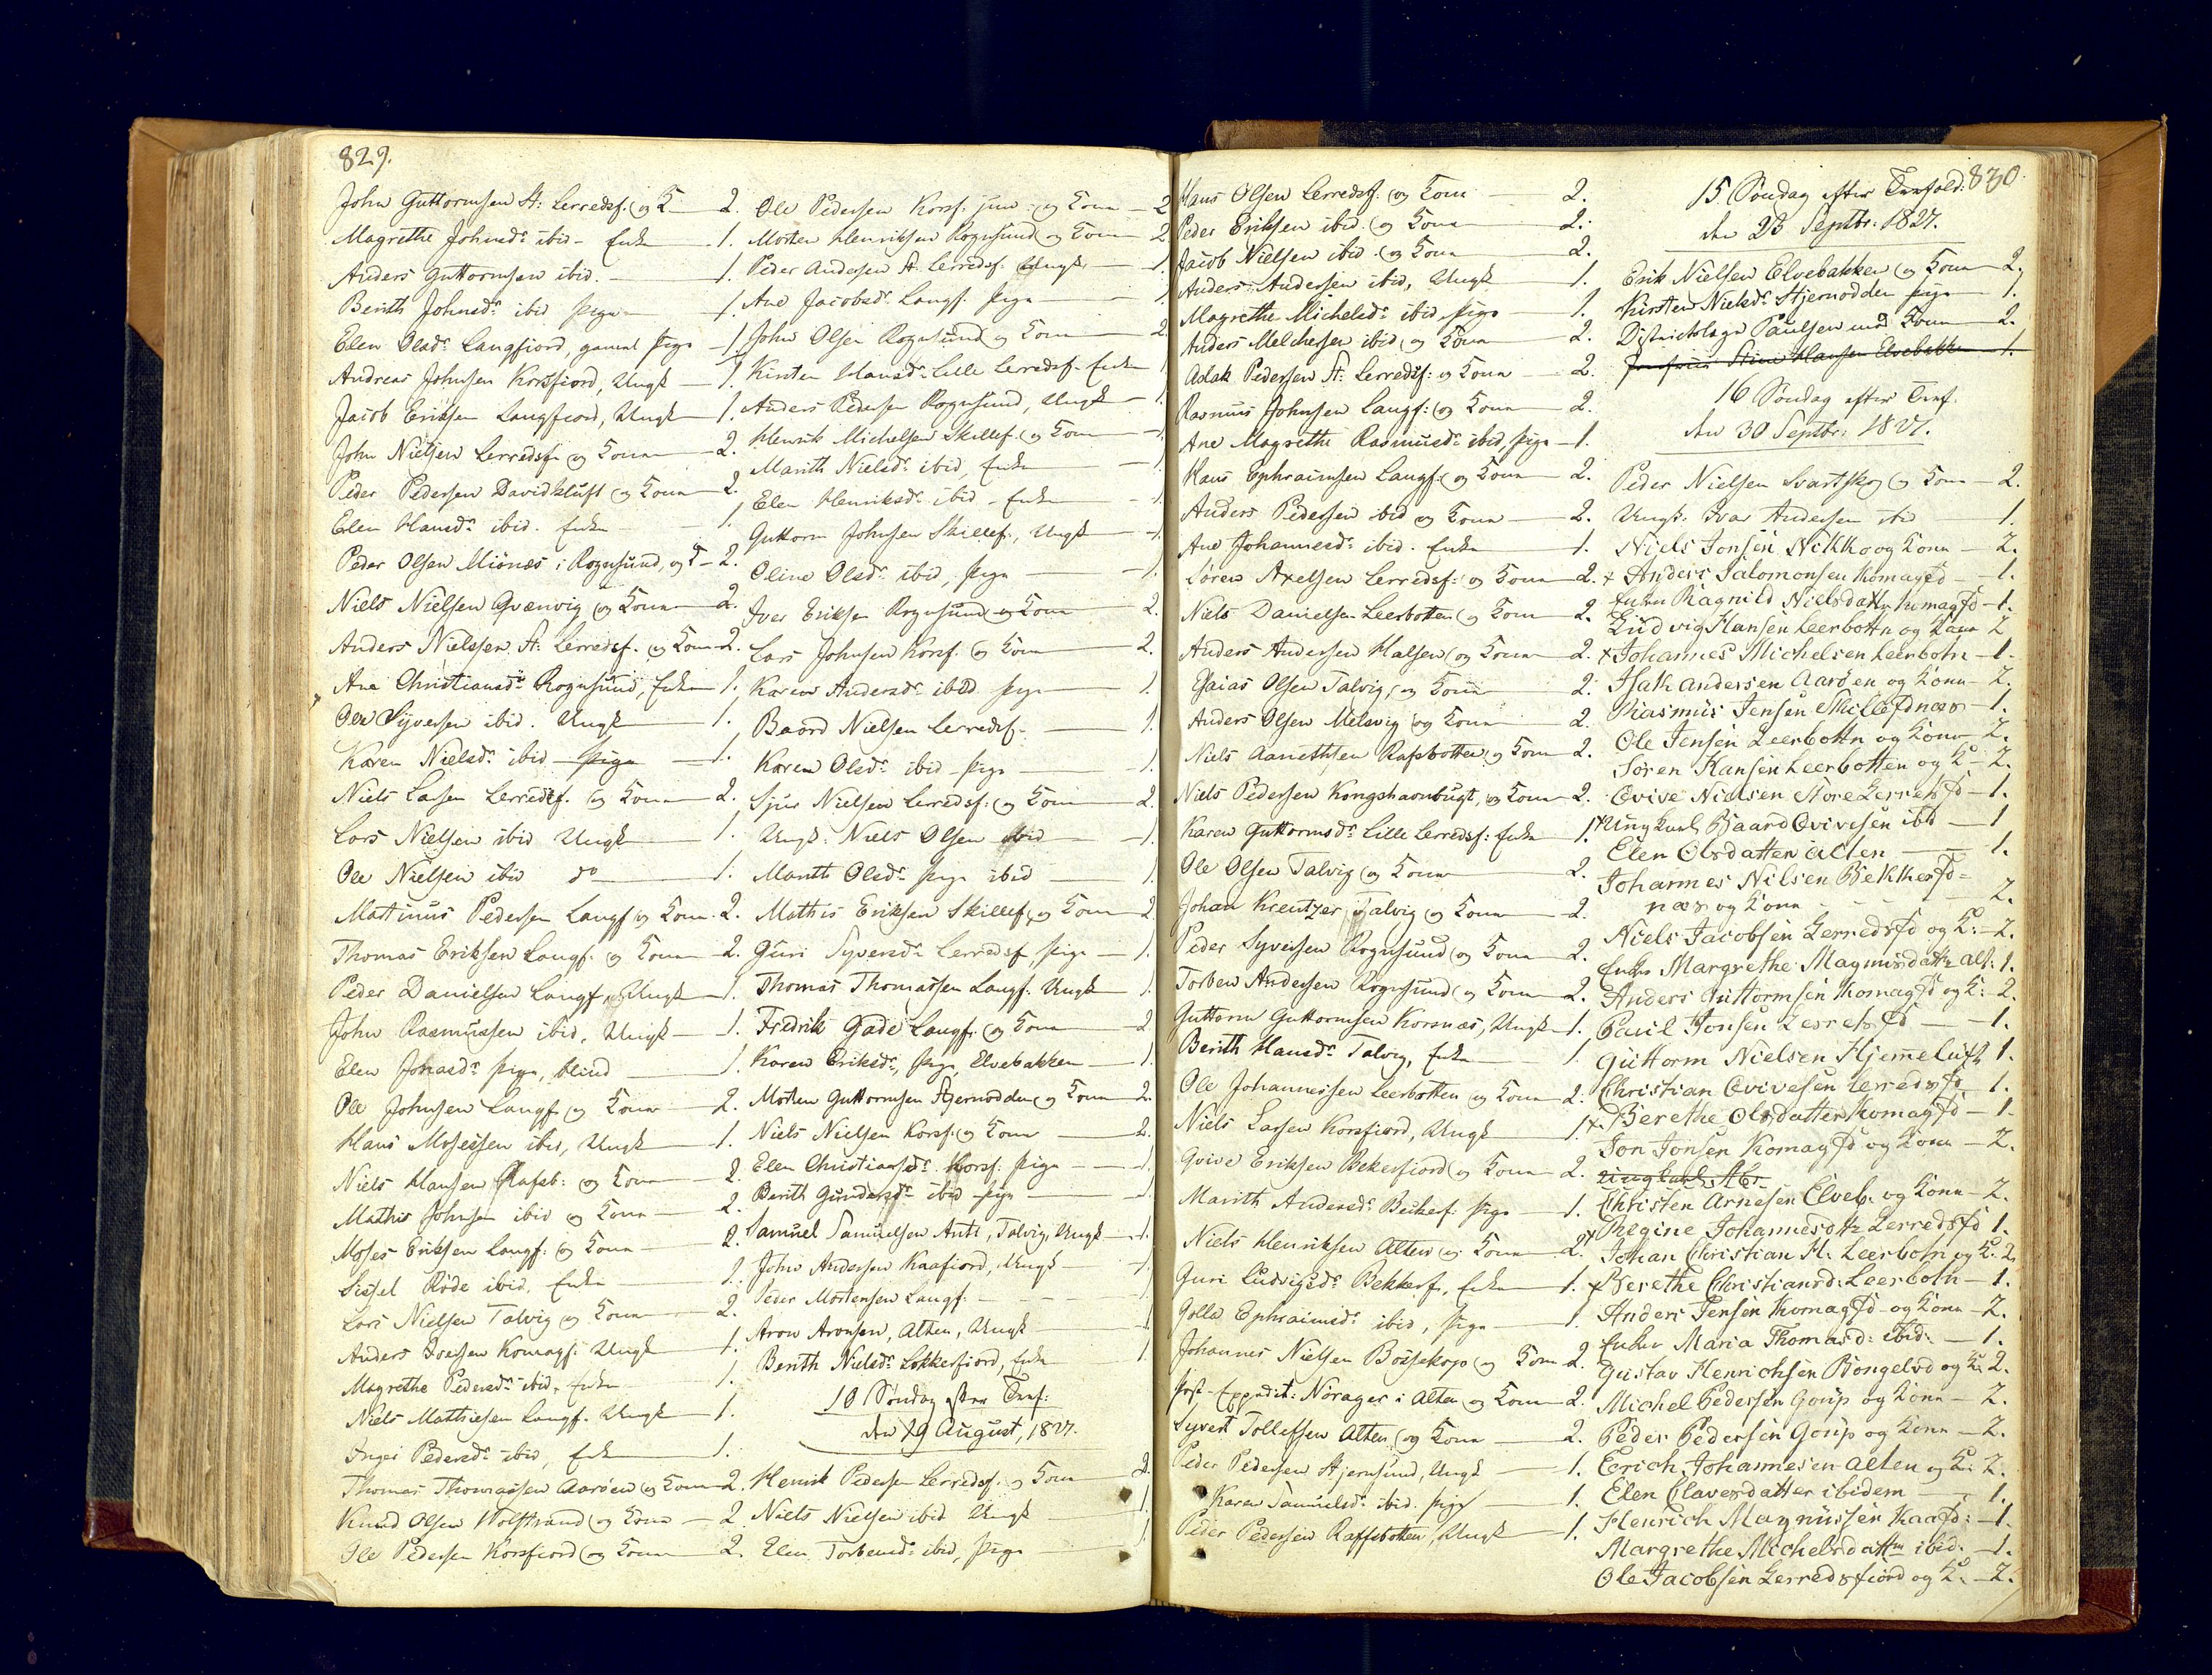 829.
John Guttormsen St: Lerredsf. og K 2.
Magrethe Johnsdr ibid - Enke 1.
Anders Guttormsen ibid. 1.
Berith Johnsdr ibid Pige 1.
Elen Olsdr Langfiord, gamel Pige 1
Andreas Johnsen Korsfiord, Ungk 1.
Jacob Eriksen Langfiord, Ungk 1.
John Nielsen Lerredsf. og Kona 2.
Peder Pedersen Davidkluft og Kona 2.
Elen Hansdr ibid. Enke 1
Peder Olsen Miönæs i Rognsund, og K 2.
Niels Nielsen Qvænvig og Kona 2.
Anders Nielssen St: Lerredsf. og Kona 2.
Ane Christiansdr Rognsund, Enke 1.
Ole Syversen ibid. Ungk 1.
Karen Nielsdr ibid Pige 1.
Niels Larsen Lerredsf. og Kona 2.
Lars Nielsen ibid Ungk 1.
Ole Nielsen ibid do 1.
Mathias Pedersen Langf. og Kona 2.
Thomas Eriksen Langf. og Kona 2.
Peder Danielsen Langf, Ungk 1.
John Rasmussen ibid, Ungk 1.
Elen Jonasdr Pige, blind 1.
Ole Johnsen Langf. og Kona 2.
Hans Mosessen ibid, Ungk 1.
Niels Hansen Rafsb: og Kona 2.
Mathis Johnsen ibid og Kona 2.
Moses Eriksen Langf. og Kona 2.
Sissel Röde ibid, Enke 1.
Lars Nielsen Talvig og Kona 2.
Anders Iversen Komagf. Ungk 1.
Magrethe Pedersdr ibid, Enke 1.
Niels Mathiesen Langf. Ungk 1.
Inger Pedersdr ibid, Enke 1.
Thomas Thomassen Aaröen og Kona 2.
Knud Olsen Wolfstrand og Kona 2
Ole Pedersen Korsfiord og Kona 2.
Ole Pedersen Korsf. jun: og Kona 2
Morten Henriksen Rognsund og Kona 2
Peder Andersen St. Lerredsf. Ungk 1.
Ane Jacobsdr Langf. Pige 1.
John Olsen Rognsund og Kona 2.
Kirsten Hansdr Lille Lerredsf. Enke 1
Anders Pedersen Rognsund, Ungk 1.
Henrik Michelsen Skillef. og Kona
Marith Nielsdr ibid, Enke 1
Elen Henriksdr ibid - Enke 1.
Guttorm Johnsen Skillef., Ungk 1.
Oline Olsdr ibid, Pige 1.
Iver Eriksen Rognsund og Kona 2.
Lars Johnsen Korsf. og Kona 2.
Karen Andersdr ibid Pige 1
Baard Nielsen Lerredsf. 1.
Karen Olsdr ibid Pige 1.
Sjur Nielsen Lerredsf: og Kona 2.
Ungk: Niels Olsen ibid 1.
Marith Olsdr Pige ibid 1.
Mathis Eriksen Skillef. og Kona 2.
Guri Syversdr Lerredsf Pige 1.
Thomas Thomassen Langf. Ungk 1.
Fredrik Gade Langf. og Kona 2
Karen Eriksdr, Pige, Elvebakken 1.
Morten Guttormsen Stjernodden og Kona 2.
Niels Nielsen Korsf. og Kona 2.
Elen Christiansdr Korsf. Pige 1
Berith Gundersdr ibid Pige 1
Samuel Samuelsen Anti, Talvig, Ungk 1.
John Andersen Kaafiord, Ungk 1
Peder Mortensen Langf. 1
Aron Aronsen, Alten, Ungk 1
Berith Nielsdr Lokkerfiord, Enke 1
10 Söndag efter Trnf:
den 19 August, 1827.
Henrik Pedersen Lerredsf. og Kona 2.
Niels Nielsen ibid Ungk 1
Elen Torbensdr ibid, Pige 1
Hans Olsen Lerredsf. og Kona 2.
Peder Eriksen ibid. og Kona 2.
Jacob Nielsen ibid. og Kona 2.
Anders Andersen ibid, Ungk 1.
Magrethe Michelsdr ibid, Pige 1.
Anders Melchersen ibid og Kona 2.
Aslak Pedersen St: Lerredsf: og Kona 2.
Rasmus Johnsen Langf: og Kona 2.
Ane Magrethe Rasmusdr ibid, Pige 1.
Hans Ephraimsen Langf. og Kona 2.
Anders Pedersen ibid og Kona 2.
Ane Johannesdr ibid. Enke 1.
Sören Axelsen Lerredsf: og Kona 2.
Niels Danielsen Leerbotten og Kona 2.
Anders Andersen Halsen og Kona 2.
Esaias Olsen Talvig, og Kona 2.
Anders Olsen Melsvig og Kona 2.
Niels Aanethsen Rafsbotten og Kona 2.
Niels Pedersen Kongshavnbugt, og Kona 2.
Karen Guttormsdr Lille Lerredsf: Enke 1.
Ole Olsen Talvig og Kona 2.
Johan Kreutzer, Talvig og Kona 2.
Peder Syversen Rognsund og Kona 2.
Torben Andersen Rognsund og Kona 2.
Guttorm Guttormsen Korsnæs, Ungk 1.
Berith Hansdr Talvig, Enke 1.
Ole Johannessen Leerbotten og Kona 2.
Niels Larsen Korsfiord, Ungk 1.
Qvive Eriksen Bekerfiord og Kona 2.
Marith Andersdr Bekkef. Pige 1.
Niels Henriksen Alten og Kona 2.
Guri Ludvigsdr Bekkerf, Enke 1.
Golla Ephraimsdr ibid, Pige 1.
Johannes Nielsen Bossekop og Kona 2.
Post-Expedit: Norager i Alten og Kona 2.
Syvert Tollefsen Alten og Kona 2.
Peder Pedersen Stjernsund, Ungk 1.
Karen Samuelsdr ibid. Pige 1.
Peder Pedersen Raffsbotten, Ungk 1.
830.
15 Söndag efter Trefold:
den 23 Septbr: 1827.
Erik Nielsen Elvebakken og Kona 2.
Kirsten Nielsdr Stjernodden Pige 1.
Districtslæge Paulsen med Frue 2.
Jomfrue Stine Hansen Elvebakken 1.
16 Söndag efter Trnf.
den 30 Septbr. 1827.
Peder Nielsen Svartskog og Kona 2.
Ungk: Ivar Andersen ibid 1.
Niels Jonsen Nikko og Kona 2.
x Anders Salomonsen Komagfd 1.
Enken Ragnild Nielsdattr Komagfd 1.
Ludvig Hansen Leerbottn og Kona 2
x Johannes Michelsen Leerbotn 1.
Isak Andersen Aaröen og Kona 2.
Rasmus Jensen Skillefdnæs 1.
Ole Jensen Leerbottn og Kona 2.
Sören Hansen Leerbotten og K 2.
Qvive Nielsen Store Lerredsfd 1.
x Ungkarl Baard Qvivesen ibd 1
Elen Olsdatter Alten 1.
Johannes Nilsen Bekkerfd=
næs og Kona 2.
Niels Jacobsen Lerredsfd og K: 2.
Enke Margrethe Magnusdattr Alt: 1.
Anders Guttormsen Komagfd og K: 2.
Paul Jonsen Lerredsfd 1.
Guttorm Nielsen Hjemeluft 1.
Christian Qvivesen Lerredsfd 1.
x Berethe Olsdatter Komagfd 1.
Jon Jonsen Komagfd og Kona 2.
Ungkarl Abr
Christen Arnesen Elveb. og Kona 2.
x Regine Johannesdtr Lerredsfd 1.
Johan Christian H: Leerbotn og K: 2
x Berethe Christiansd: Leerbotn 1.
Anders Jensen Komagfd og Kona 2.
Enken Maria Thomasd: ibid: 1.
Gustav Henrichsen Bongelvd og K: 2.
Michel Pedersen Goup og Kona 2.
Peder Pedersen Goup og Kona 2.
Erich Johannesen Alten og K: 2.
Elen Clavesdatter ibidem 1.
Henrich Magnussen Kaafd: 1.
Margrethe Michelsdattr ibid: 1.
Ole Jacobsen Lerredsfiord og K. 2.